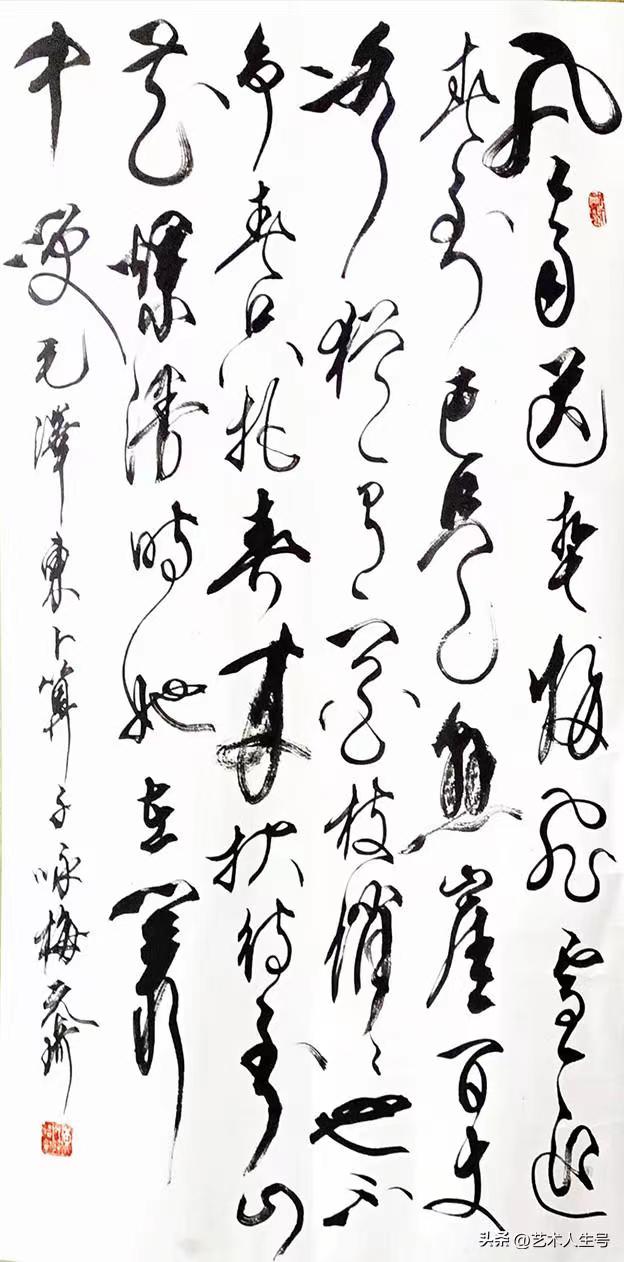 风雨送春歸飛雪迎
春到已是懸崖百丈
冰猶有花枝俏〻也不
争春只把春來报待到山
花爛漫時她在叢
中笑 毛澤東卜算子咏梅
头条 @艺术人生号